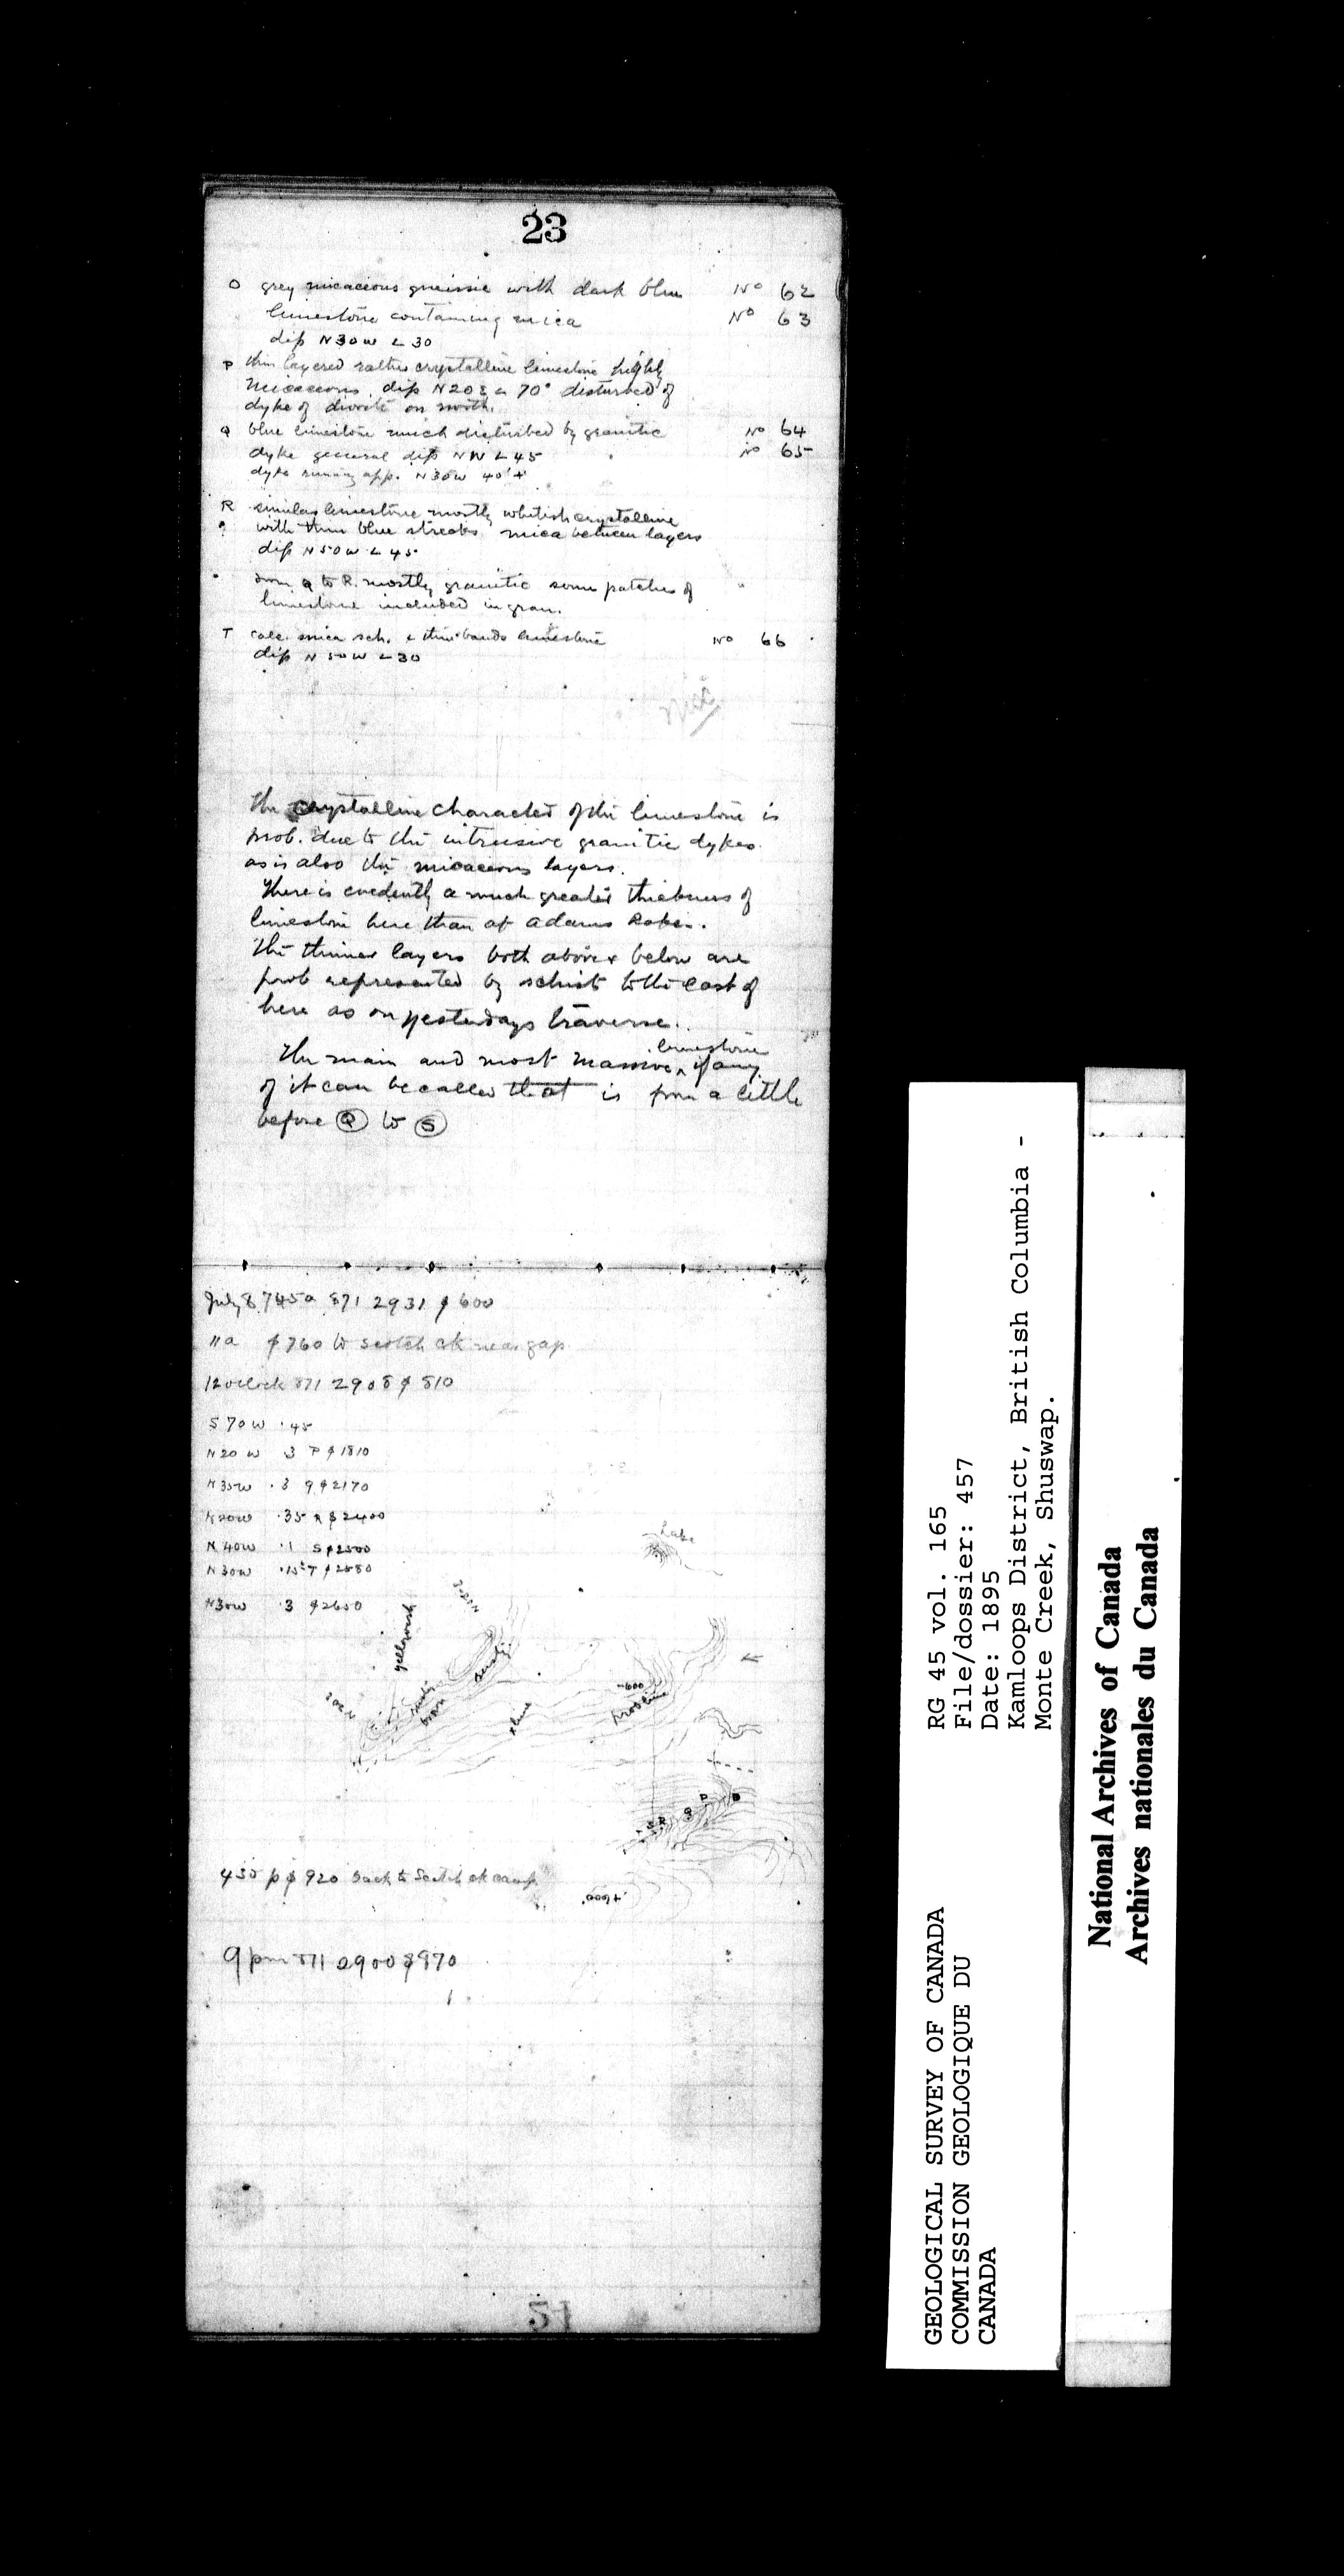 23
O grey micaceous gneissic with dark blue No 62
limestone containing mica No 63
dip N30W ∠ 30
P thin layered rather crystalline limestone highly
micaceous. dip N20E ∠ 70° disturbed
dyke of diorite on north.
Q blue limestone much disturbed by granitic No 64
dyke general dip NW ∠ 45 No 65
dyke running app. N30W 40'+
R similar limestone mostly whitish crystalline
with thin blue streaks mica between layers
dip N50W ∠ 45
from Q to R. mostly granitic some patches of
limestone included in gran.
T calc. mica sch. & thin bands limestone No 66
dip N50W ∠ 30
The crystalline character of the limestone is
prob. due to the intrusive granitic dykes.
as is also the micaceous layers.
There is evidently a much greater thickness of
limestone here than at Adams Lake.
The thinner layers both above & below are
prob represented by schist to the east of
here as on yesterdays traverse.
The main and most massive limestone if any
of it can be called that is from a little
before Q to S
July 8 745a 871 2931 $ 600
11a $ 760 to Scotch ck near gap
12 oclock 871 2908 $ 810
S70W .45
N20W .3 P $ 1810
N35W .3 Q $ 2170
N20W .35 R $ 2400
N40W .1 S $ 2500
N30W T $ 2550
N30W .3 $ 2650
Lake
-600
S R Q P O
+1000'
430 p $ 920 back to Scotch ck camp
9 pm 871 2900 $ 970
RG 45 vol. 165
File/dossier: 457
Date: 1895
Kamloops District, British Columbia -
Monte Creek, Shuswap.
GEOLOGICAL SURVEY OF CANADA
COMMISSION GEOLOGIQUE DU
CANADA
National Archives of Canada
Archives nationales du Canada